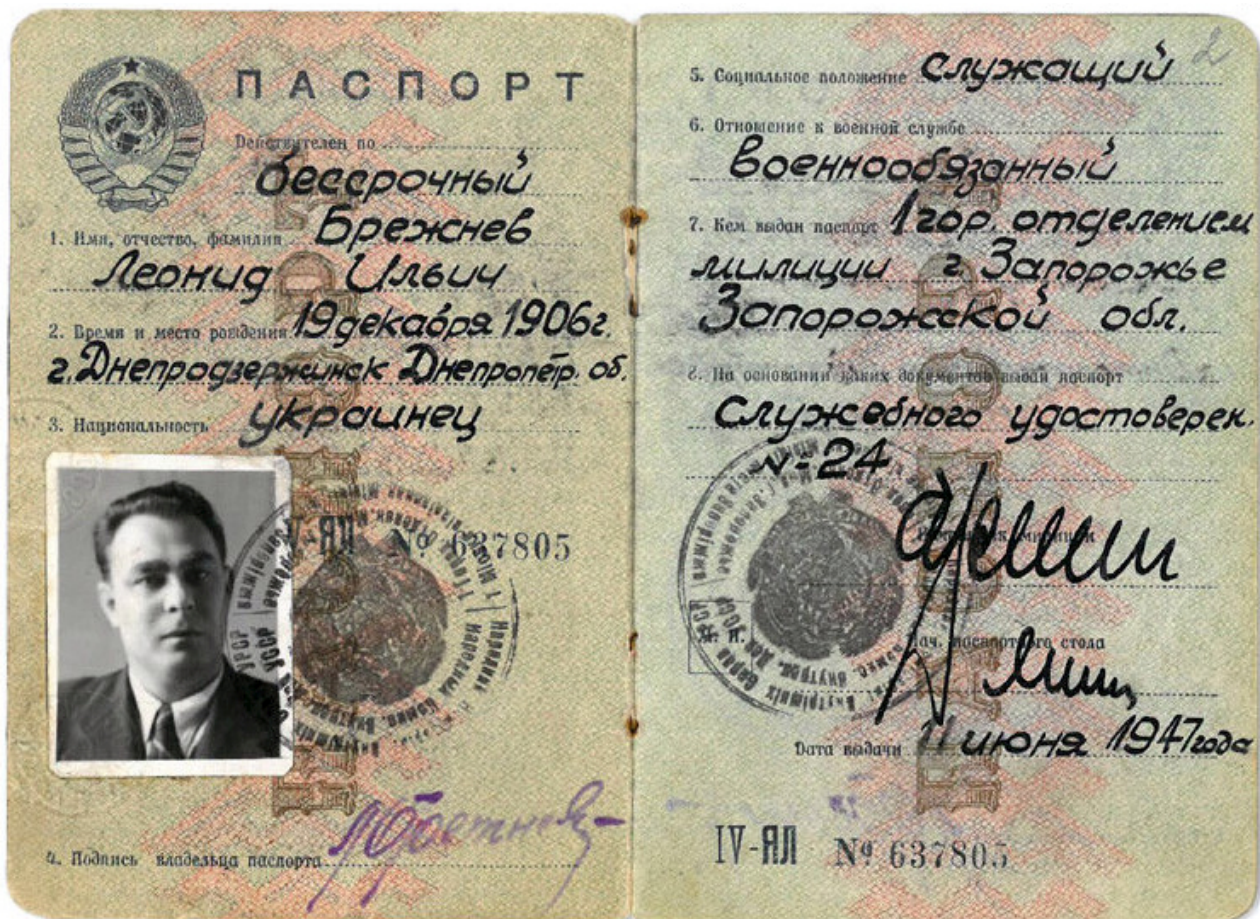 ПАСПОРТ
Действителен по
бессрочный
1. Имя, отчество, фамилия Брежнев
Леонид Ильич
2. Время и место рождения 19 декабря 1906г.
г. Днепродзержинск Днепропетр. об.
3. Национальность украинец
IV-ЯЛ № 637805
4. Подпись владельца паспорта
2
5. Социальное положение служащий
6. Отношение к военной службе
военнообязанный
7. Кем выдан паспорт 1 гор. отделением
милиции г. Запорожье
Запорожской обл.
8. На основании каких документов выдан паспорт
Служебного удостоверен.
v-24
Нач. паспортного стола
Дата выдачи 11 июня 1947 года
IV-ЯЛ № 637805